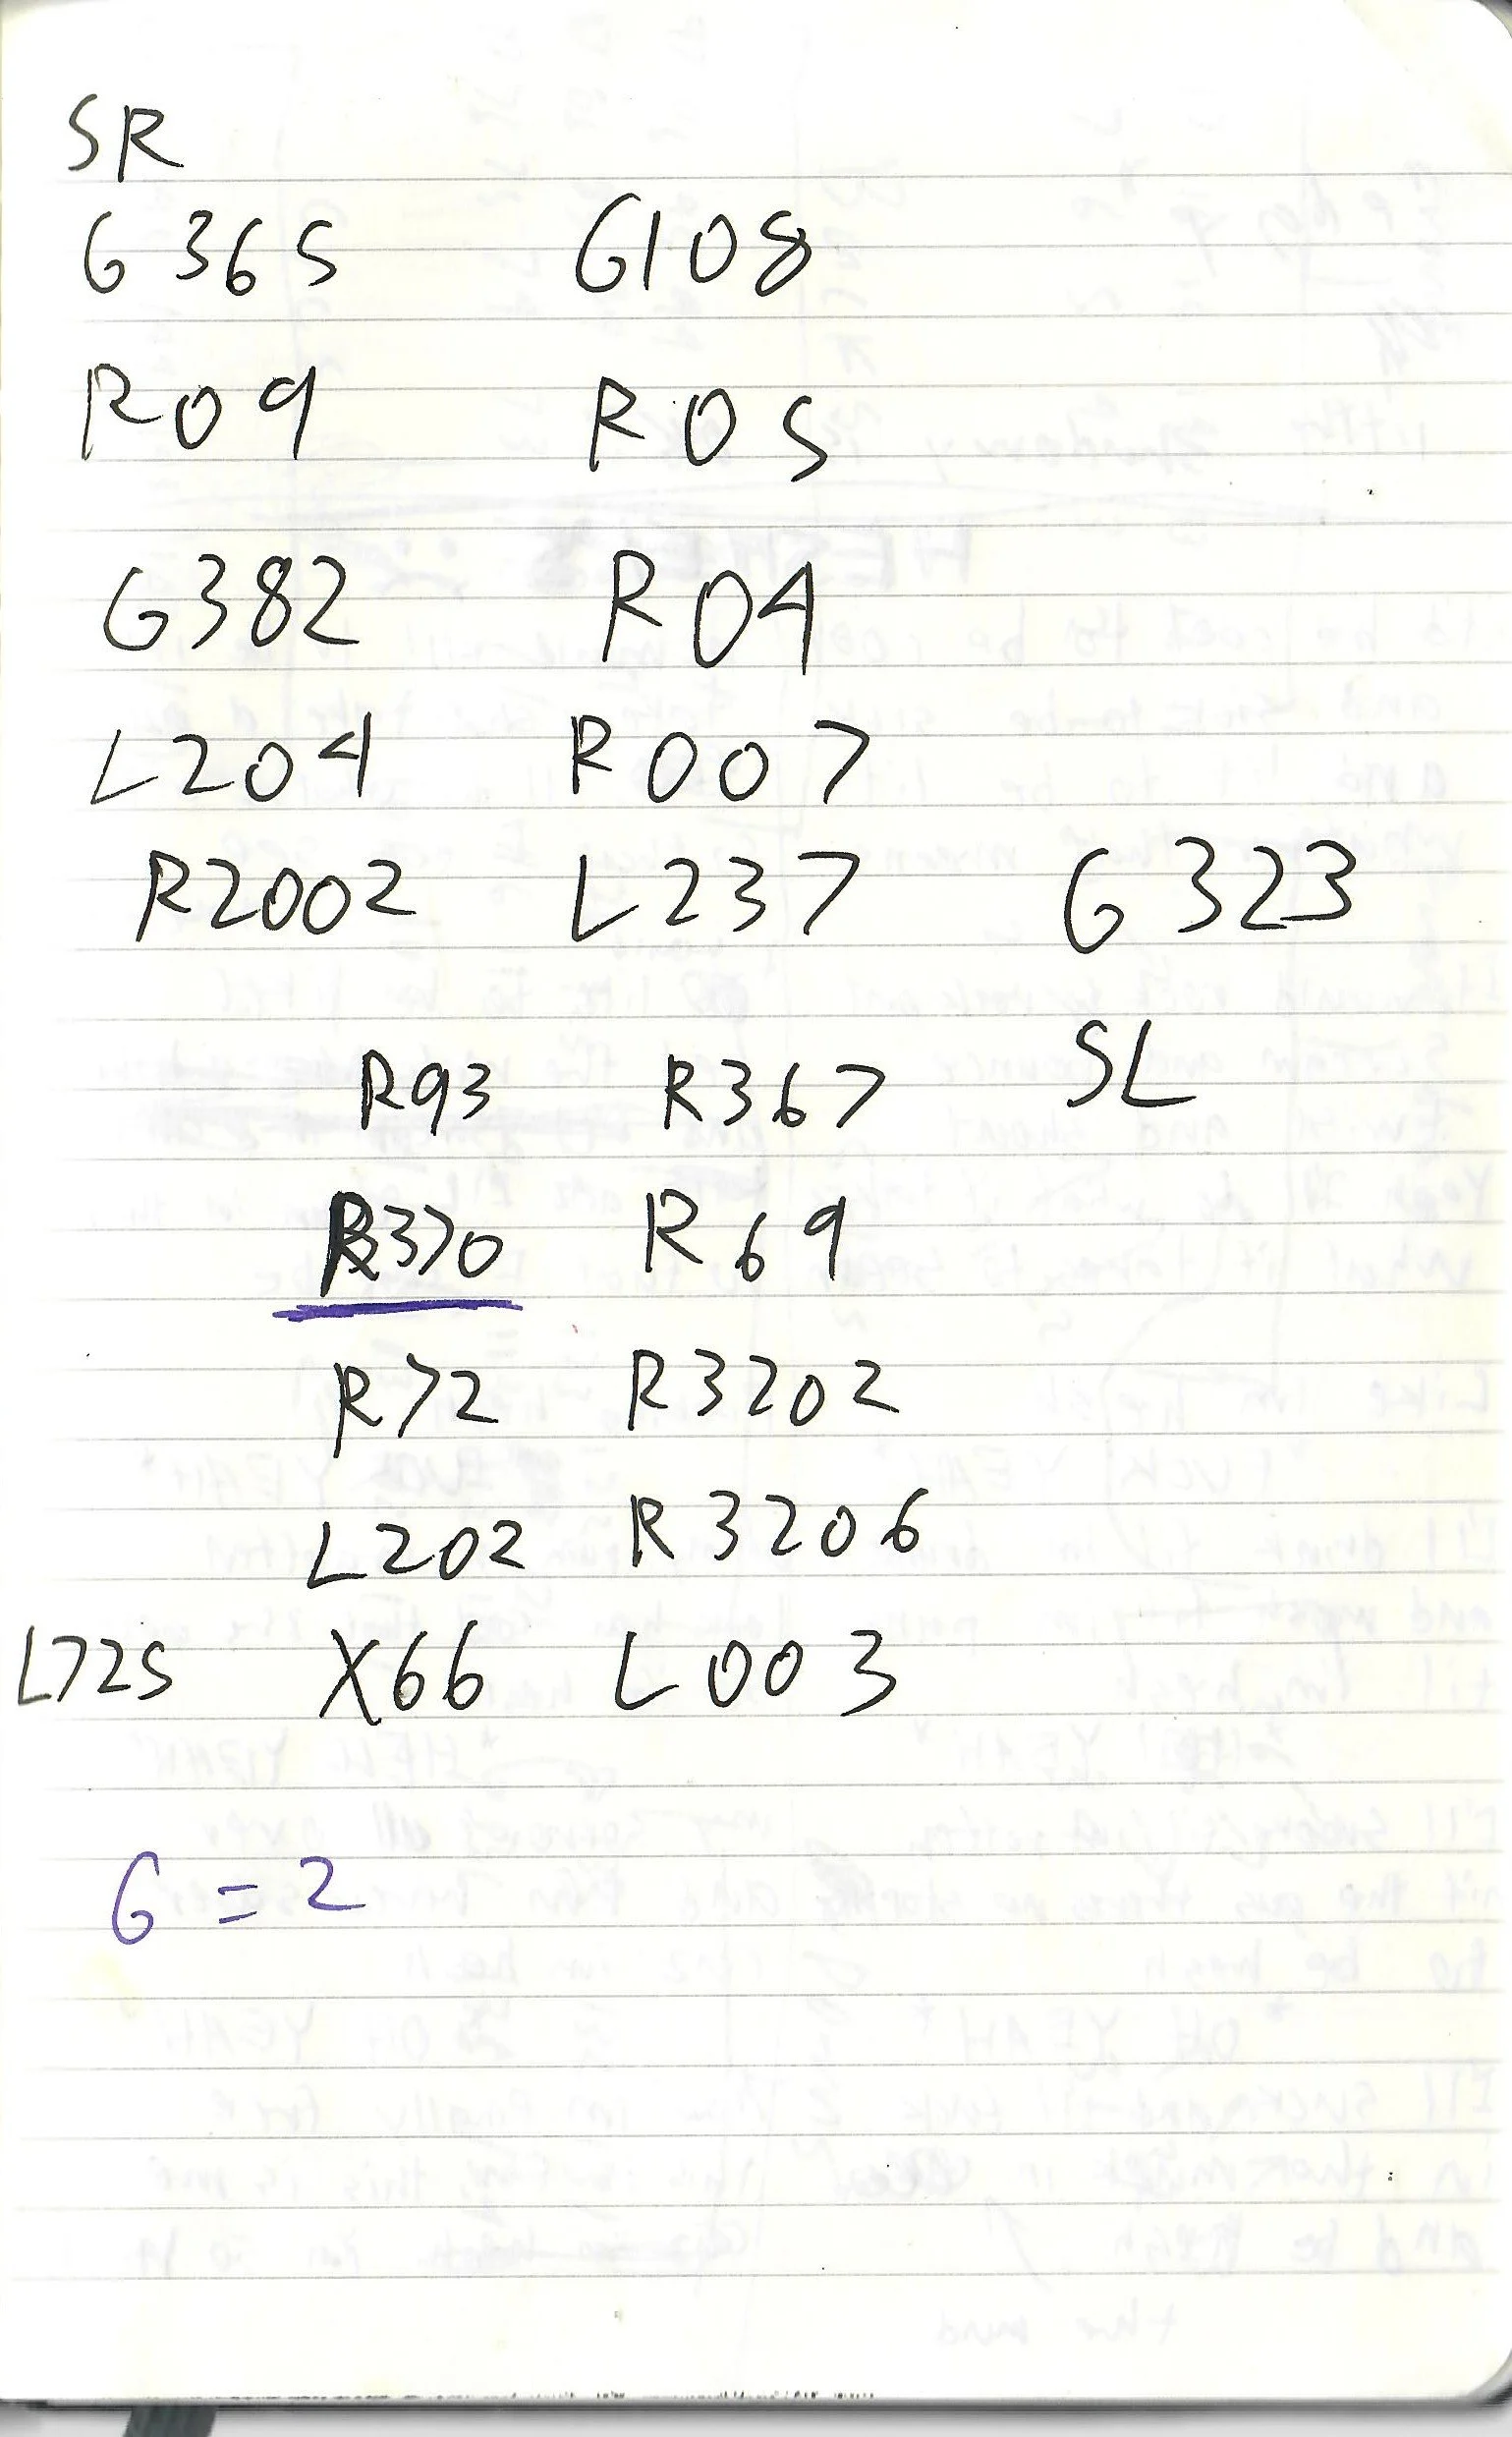 SR
G365 G108
R09 R05
G382 R04
L204 R007
R2002 L237 G323
R93 R367 SL
R370 R69
R72 R3202
L202 R3206
L725 X66 L003
G = 2